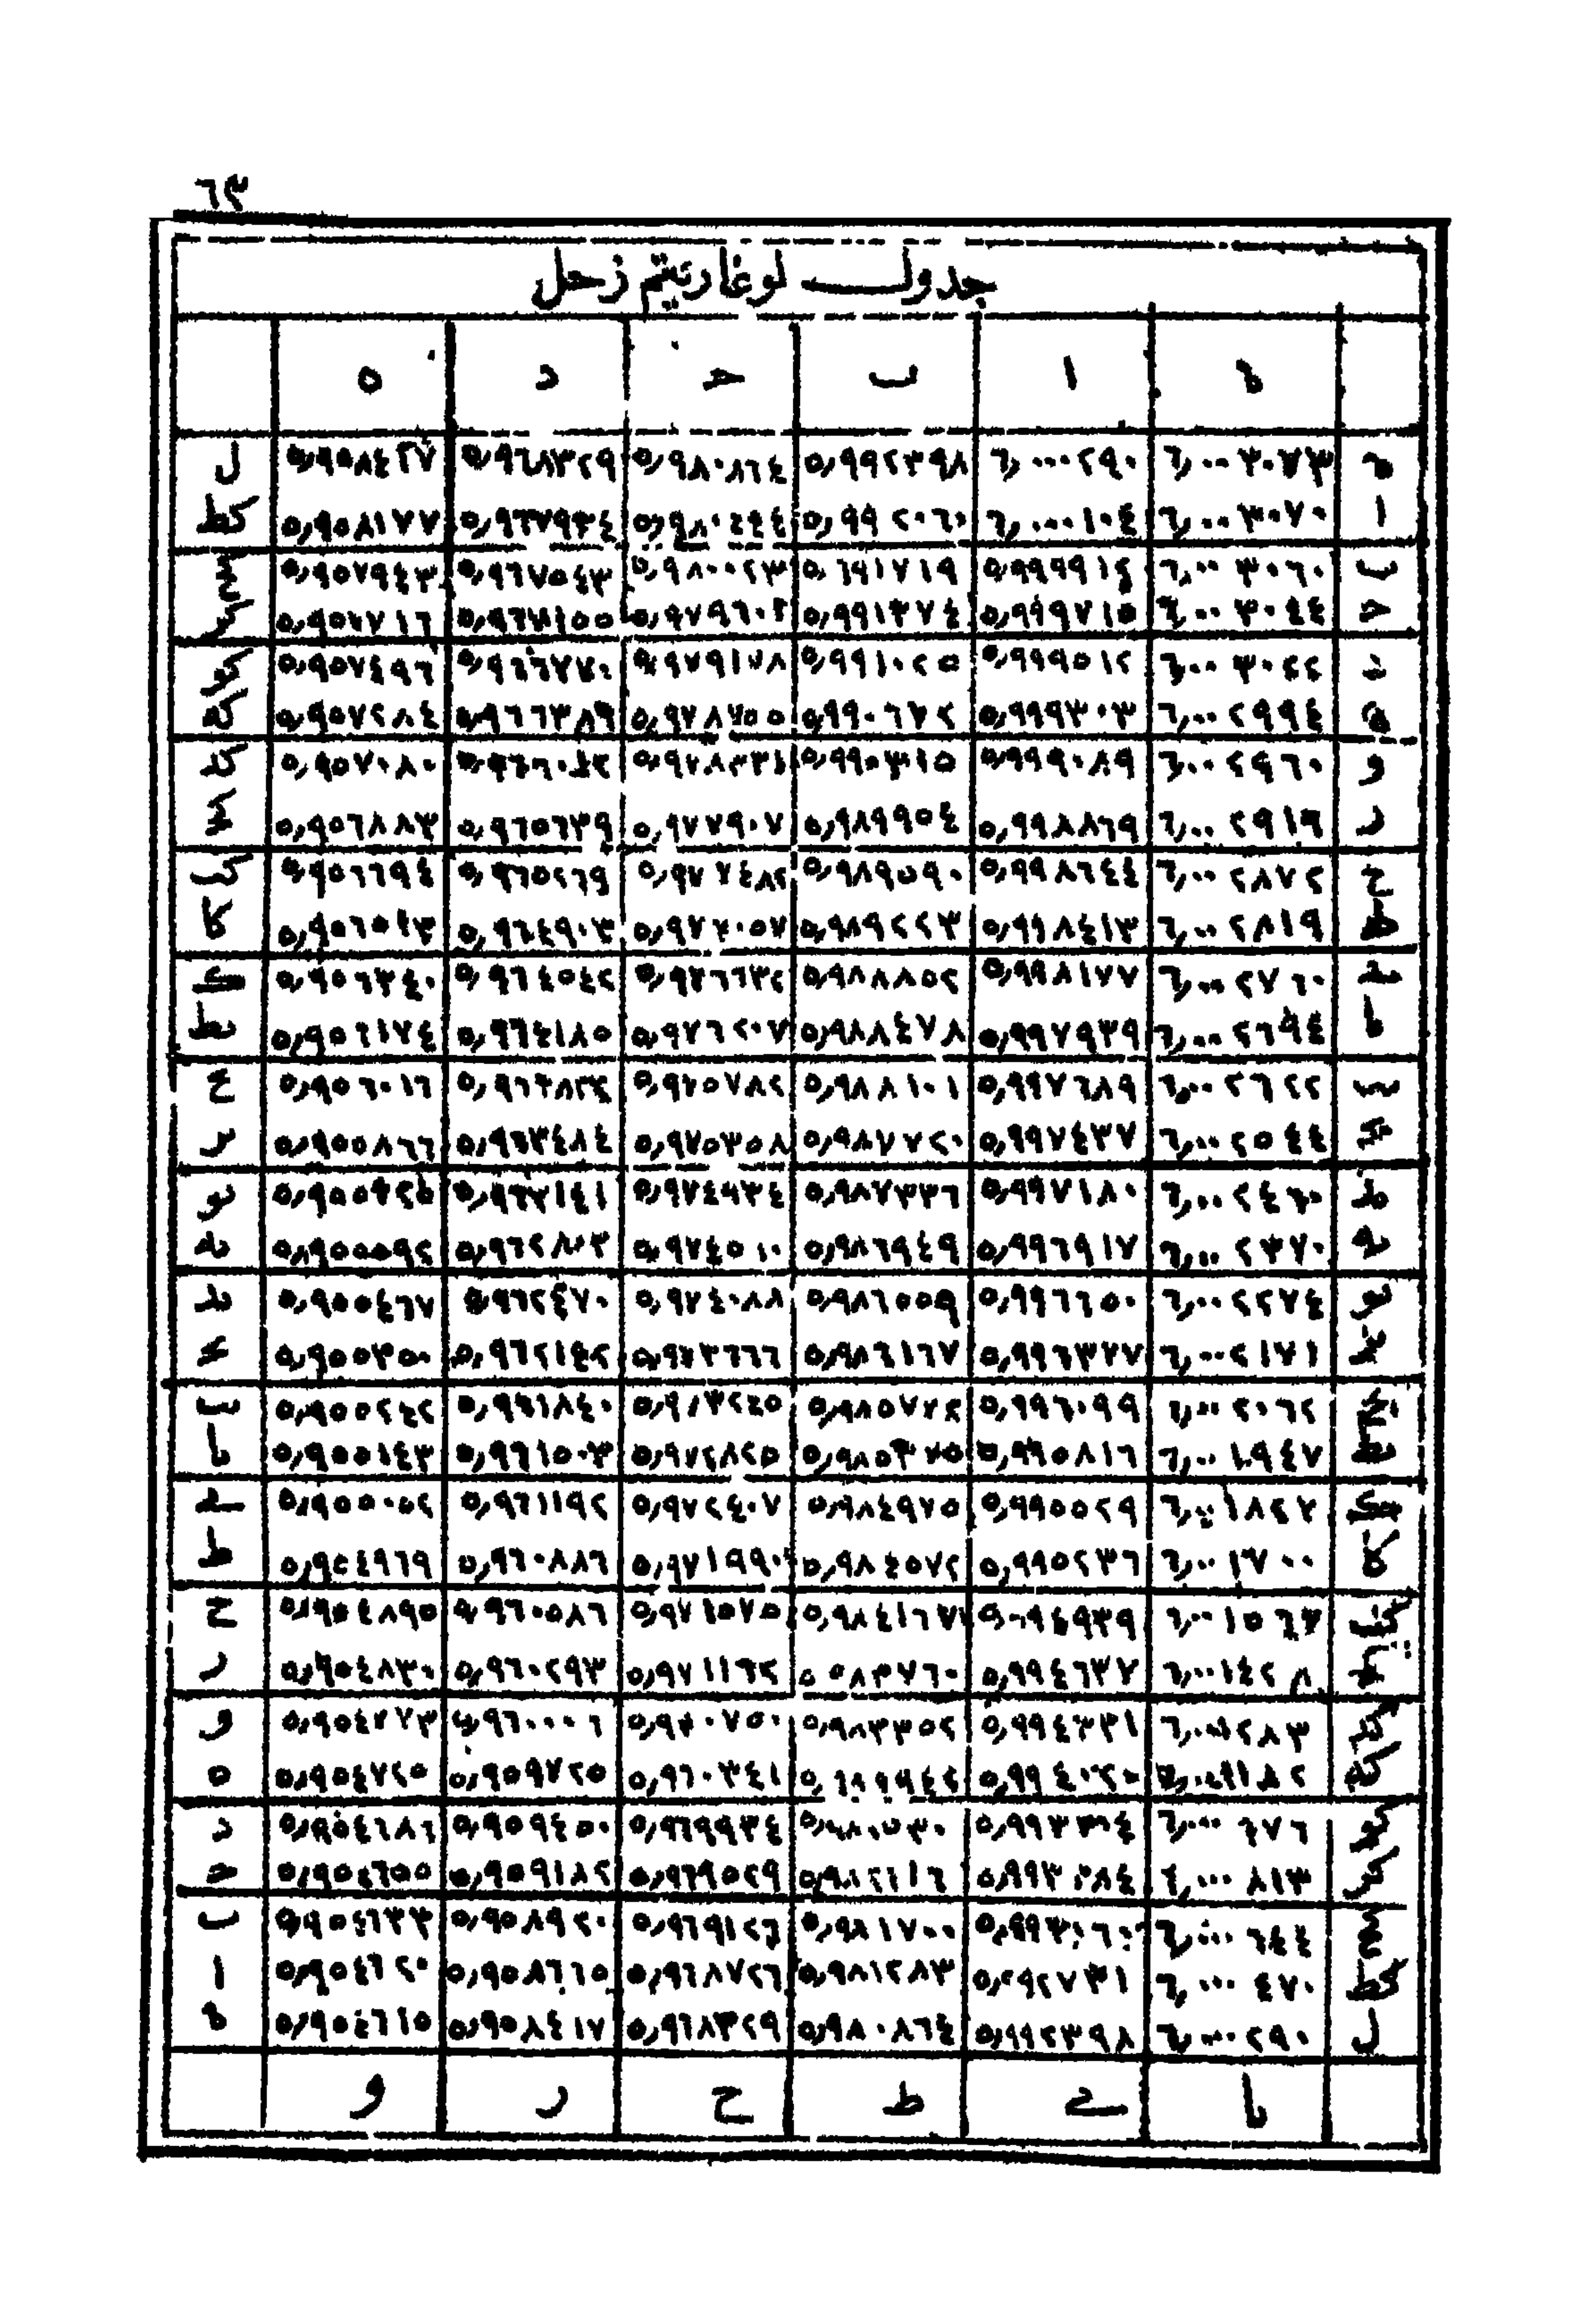 ٦٣
جدول لوغاريتم زحل
ه ا ب ح د ه
ه ٦,٠٠٠٣٠٧٣ ٦,٠٠٠٠٢٩٠ ٥,٩٩٢٣٩٨ ٥,٩٨٠٨٦٤ ٥,٩٦٨٣٢٩ ٥,٩٥٨٤٢٧ ل
ا ٦,٠٠٠٣٠٧٠ ٦,٠٠٠٠١٠٤ ٥,٩٩٢٠٦٠ ٥,٩٨٠٤٤٤ ٥,٩٦٧٩٣٤ ٥,٩٥٨١٧٧ كط
ب ٦,٠٠٠٣٠٦٠ ٥,٩٩٩٩١٢ ٥,٩٩١٧١٩ ٥,٩٨٠٠٢٣ ٥,٩٦٧٥٤٣ ٥,٩٥٧٩٤٣ كح
ح ٦,٠٠٠٣٠٤٤ ٥,٩٩٩٧١٥ ٥,٩٩١٣٧٤ ٥,٩٧٩٦٠٢ ٥,٩٦٧١٥٥ ٥,٩٥٧٧١٦ كر
د ٦,٠٠٠٣٠٢٢ ٥,٩٩٩٥١٢ ٥,٩٩١٠٢٥ ٥,٩٧٩١٧٨ ٥,٩٦٦٧٧٠ ٥,٩٥٧٤٩٦ كو
ه ٦,٠٠٠٢٩٩٤ ٥,٩٩٩٣٠٣ ٥,٩٩٠٦٧٢ ٥,٩٧٨٧٥٥ ٥,٩٦٦٣٨٩ ٥,٩٥٧٢٨٤ كه
و ٦,٠٠٠٢٩٦٠ ٥,٩٩٩٠٨٩ ٥,٩٩٠٣١٥ ٥,٩٧٨٣٣١ ٥,٩٦٦٠١٢ ٥,٩٥٧٠٨٠ كد
ر ٦,٠٠٠٢٩١٩ ٥,٩٩٨٨٦٩ ٥,٩٨٩٩٥٤ ٥,٩٧٧٩٠٧ ٥,٩٦٥٦٣٩ ٥,٩٥٦٨٨٣ كح
ح ٦,٠٠٠٢٨٧٢ ٥,٩٩٨٦٤٤ ٥,٩٨٩٥٩٠ ٥,٩٧٧٤٨٢ ٥,٩٦٥٢٦٩ ٥,٩٥٦٦٩٤ كب
ط ٦,٠٠٠٢٨١٩ ٥,٩٩٨٤١٣ ٥,٩٨٩٢٢٣ ٥,٩٧٧٠٥٧ ٥,٩٦٤٩٠٣ ٥,٩٥٦٥١٣ كا
ے ٦,٠٠٠٢٧٦٠ ٥,٩٩٨١٧٧ ٥,٩٨٨٨٥٢ ٥,٩٧٦٦٣٢ ٥,٩٦٤٥٤٢ ٥,٩٥٦٣٤٠ ك
ىا ٦,٠٠٠٢٦٩٤ ٥,٩٩٧٩٣٩ ٥,٩٨٨٤٧٨ ٥,٩٧٦٢٠٧ ٥,٩٦٤١٨٥ ٥,٩٥٦١٧٤ ىط
ىب ٦,٠٠٠٢٦٢٢ ٥,٩٩٧٦٨٩ ٥,٩٨٨١٠١ ٥,٩٧٥٧٨٢ ٥,٩٦٣٨٣٢ ٥,٩٥٦٠١٦ ىح
ىح ٦,٠٠٠٢٥٤٤ ٥,٩٩٧٤٣٧ ٥,٩٨٧٧٢٠ ٥,٩٧٥٣٥٨ ٥,٩٦٣٤٨٤ ٥,٩٥٥٨٦٦ ىر
ىد ٦,٠٠٠٢٤٦٠ ٥,٩٩٧١٨٠ ٥,٩٨٧٣٣٦ ٥,٩٧٤٩٣٤ ٥,٩٦٣١٤١ ٥,٩٥٥٧٢٥ ىو
ىه ٦,٠٠٠٢٣٧٠ ٥,٩٩٦٩١٧ ٥,٩٨٦٩٤٩ ٥,٩٧٤٥١٠ ٥,٩٦٢٨٠٣ ٥,٩٥٥٥٩٢ ىه
ىو ٦,٠٠٠٢٢٧٤ ٥,٩٩٦٦٥٠ ٥,٩٨٦٥٥٩ ٥,٩٧٤٠٨٨ ٥,٩٦٢٤٧٠ ٥,٩٥٥٤٦٧ ىد
ىر ٦,٠٠٠٢١٧١ ٥,٩٩٦٣٧٧ ٥,٩٨٦١٦٧ ٥,٩٧٣٦٦٦ ٥,٩٦٢١٤٢ ٥,٩٥٥٣٥٠ ىح
ىح ٦,٠٠٠٢٠٦٢ ٥,٩٩٦٠٩٩ ٥,٩٨٥٧٧٢ ٥,٩٧٣٢٤٥ ٥,٩٦١٨٤٠ ٥,٩٥٥٢٤٢ ىب
ىط ٦,٠٠٠١٩٤٧ ٥,٩٩٥٨١٦ ٥,٩٨٥٣٧٥ ٥,٩٧٢٨٢٥ ٥,٩٦١٥٠٣ ٥,٩٥٥١٤٣ ىا
ك ٦,٠٠٠١٨٢٧ ٥,٩٩٥٥٢٩ ٥,٩٨٤٩٧٥ ٥,٩٧٢٤٠٧ ٥,٩٦١١٩٢ ٥,٩٥٥٠٥٢ ے
كا ٦,٠٠٠١٧٠٠ ٥,٩٩٥٢٣٦ ٥,٩٨٤٥٧٢ ٥,٩٧١٩٩٠ ٥,٩٦٠٨٨٦ ٥,٩٥٤٩٦٩ ط
كب ٦,٠٠٠١٥٦٧ ٥,٩٩٤٩٣٩ ٥,٩٨٤١٦٧ ٥,٩٧١٥٧٥ ٥,٩٦٠٥٨٦ ٥,٩٥٤٨٩٥ ح
كح ٦,٠٠٠١٤٢٨ ٥,٩٩٤٦٣٧ ٥٨٣٧٦٠ ٥,٩٧١١٦٢ ٥,٩٦٠٢٩٣ ٥,٩٥٤٨٣٠ ر
كد ٦,٠٠٠١٢٨٣ ٥,٩٩٤٣٣١ ٥,٩٨٣٣٥٢ ٥,٩٧٠٧٥٠ ٥,٩٦٠٠٠٦ ٥,٩٥٤٧٧٣ و
كه ٥,٩٩٤٠٢٠ ٥,٩٦٠٣٤١ ٥,٩٥٩٧٢٥ ٥,٩٥٤٧٢٥ ه
كو ٥,٩٦٩٩٣٤ ٥,٩٥٩٤٥٠ ٥,٩٥٤٦٨٦ د
كر ٦,٠٠٠٠٨١٣ ٥,٩٨٢١١٦ ٥,٩٦٩٥٢٩ ٥,٩٥٩١٨٢ ٥,٩٥٤٦٥٥ ح
كح ٦,٠٠٠٠٦٤٤ ٥,٩٩٣٠٦٠ ٥,٩٨١٧٠٠ ٥,٩٦٩١٢٦ ٥,٩٥٨٩٢٠ ٥,٩٥٤٦٣٣ ب
كط ٦,٠٠٠٠٤٧٠ ٥,٩٩٢٧٣١ ٥,٩٨١٢٨٣ ٥,٩٦٨٧٢٦ ٥,٩٥٨٦٦٥ ٥,٩٥٤٦٢٠ ا
ل ٦,٠٠٠٠٢٩٠ ٥,٩٩٢٣٩٨ ٥,٩٨٠٨٦٤ ٥,٩٦٨٣٢٩ ٥,٩٥٨٤١٧ ٥,٩٥٤٦١٥ ه
ىا ے ط ح ر و